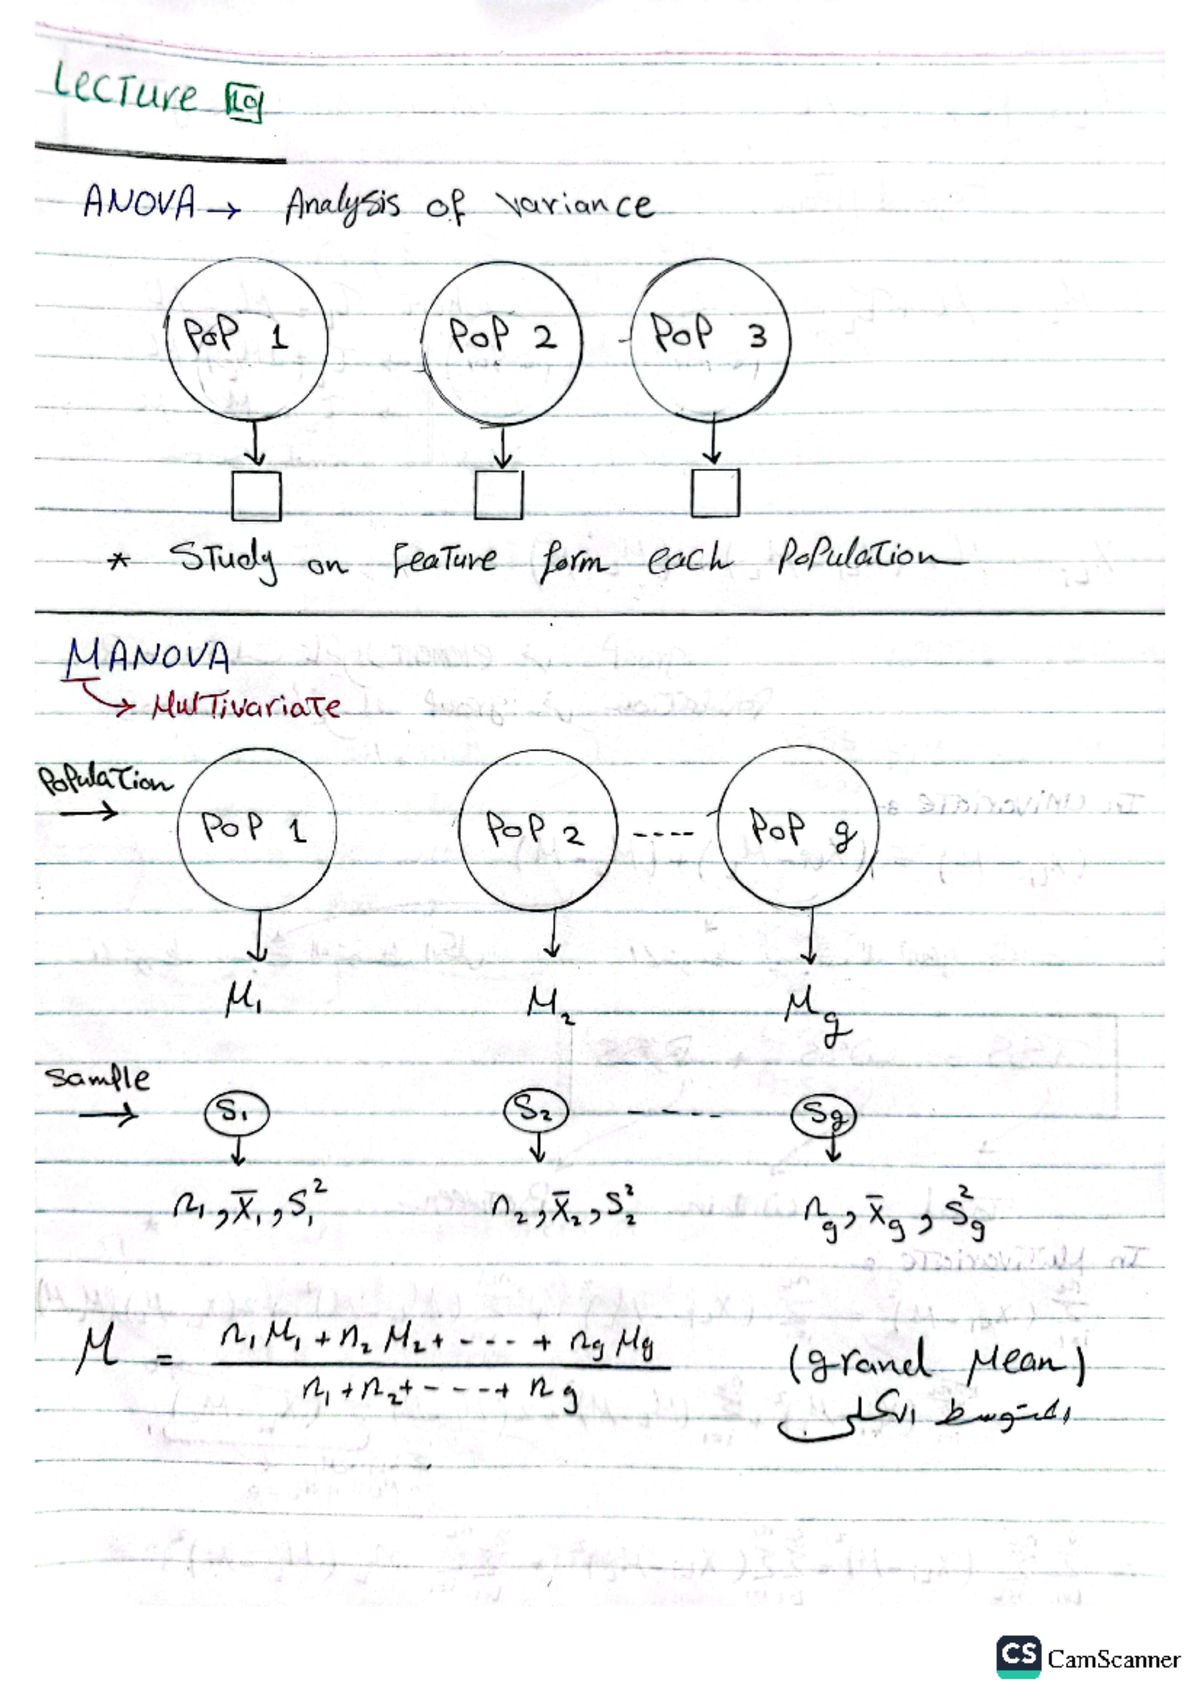 Lecture 10
ANOVA → Analysis of variance
POP 1 POP 2 POP 3
* Study on Feature form each Population
MANOVA
→ Multivariate
Population →
POP 1 POP 2 ---- POP g
M₁ M₂ Mg
Sample →
S₁ S₂ ---- Sg
n₁, X̄₁, S₁² n₂, X̄₂, S₂² ng, X̄g, Sg²
M = (n₁M₁ + n₂M₂ + ---- + ngMg) / (n₁ + n₂ + ---- + ng) (grand Mean)
المتوسط الكلى
CS CamScanner